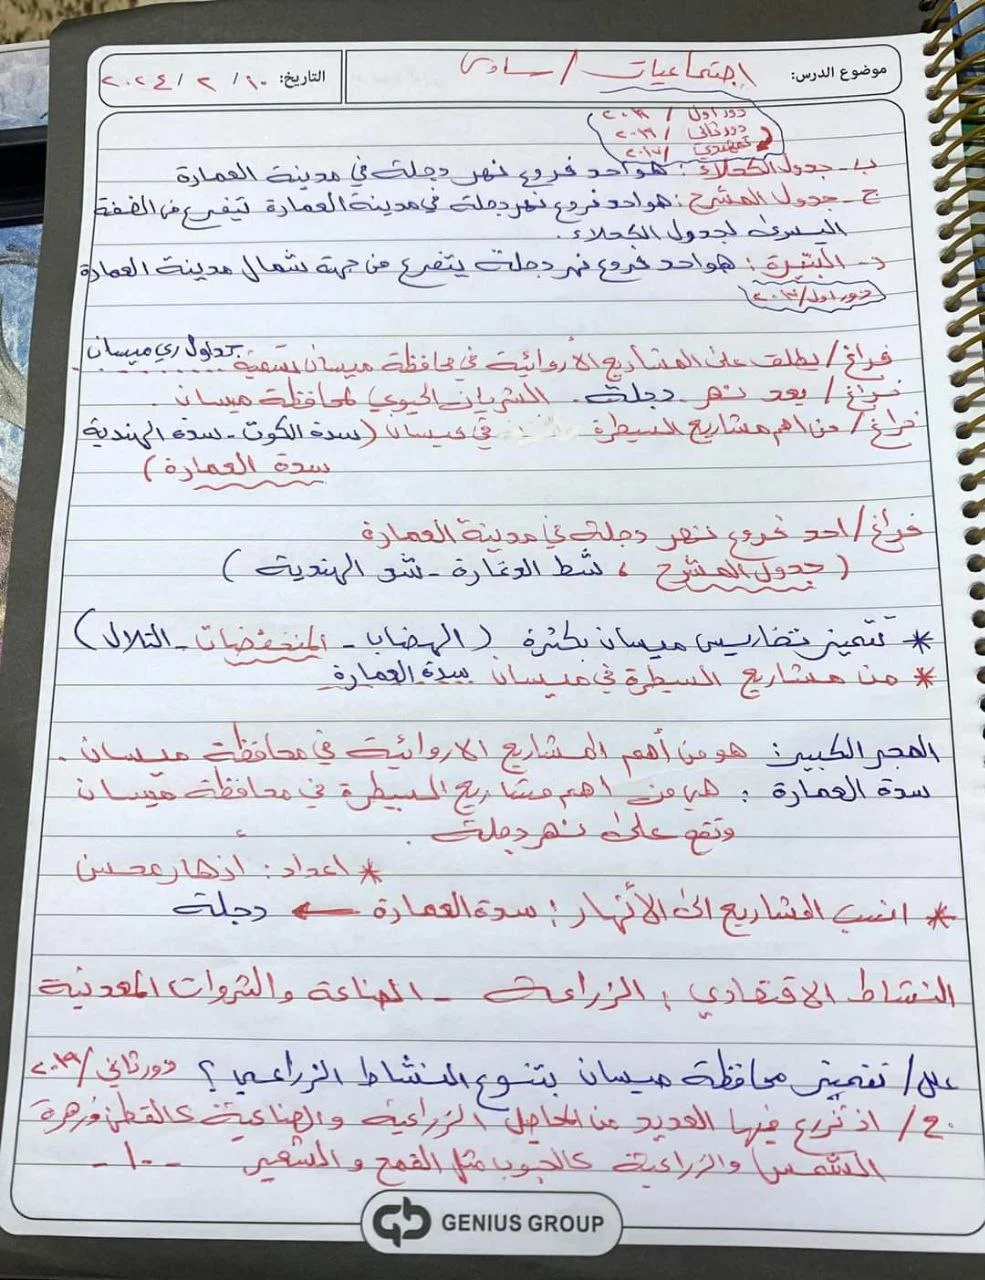 موضوع الدرس: إجتماعيات / سادس
التاريخ: ١٠ / ٢ / ٢٠٢٤
دور اول /
دور ثاني / ٢٠١٩
تمهيدي / ٢٠١٧
ب- جدول الكحلاء: هو احد فروع نهر دجلة في مدينة العمارة
ج- جدول المشرح: هو احد فروع نهر دجلة في مدينة العمارة تيفرع من الضفة
اليسرى لجدول الكحلاء.
د- البتيرة: هو احد فروع نهر دجلة يتفرع من جهة شمال مدينة العمارة
دور اول/
فراغ/ يطلق على المشاريع الأروائية في محافظة ميسان تسمية جداول ري ميسان
فراغ/ يعد نهر دجلة. الشريان الحيوي لمحافظة ميسان.
فراغ/ من اهم مشاريع السيطرة في ميسان (سدة الكوت - سدة الهندية
سدة العمارة)
فراغ/ احد فروع نهر دجلة في مدينة العمارة
(جدول المشرح ، شط الدغارة - شط الهندية)
* تتميز تضاريس ميسان بكثرة (الهضاب - المنخفضات - التلال)
* من مشاريع السيطرة في ميسان سدة العمارة
المجر الكبير: هو من أهم المشاريع الاروائية في محافظة ميسان.
سدة العمارة: هي من اهم مشاريع السيطرة في محافظة ميسان
وتقع على نهر دجلة.
* اعداد: ازهار محسن
* انسب المشاريع الى الأنهار: سدة العمارة ← دجلة
النشاط الاقتصادي: الزراعة - الصناعة والثروات المعدنية
علل/ تتميز محافظة ميسان بتنوع النشاط الزراعي؟ دور ثاني/ ٢٠١٩
ج/ اذ تزرع فيها العديد من المحاصيل الزراعية والصناعية كالقطن وزهرة
الشمس والزراعية كالحبوب مثل القمح والشعير -١٠-
GENIUS GROUP